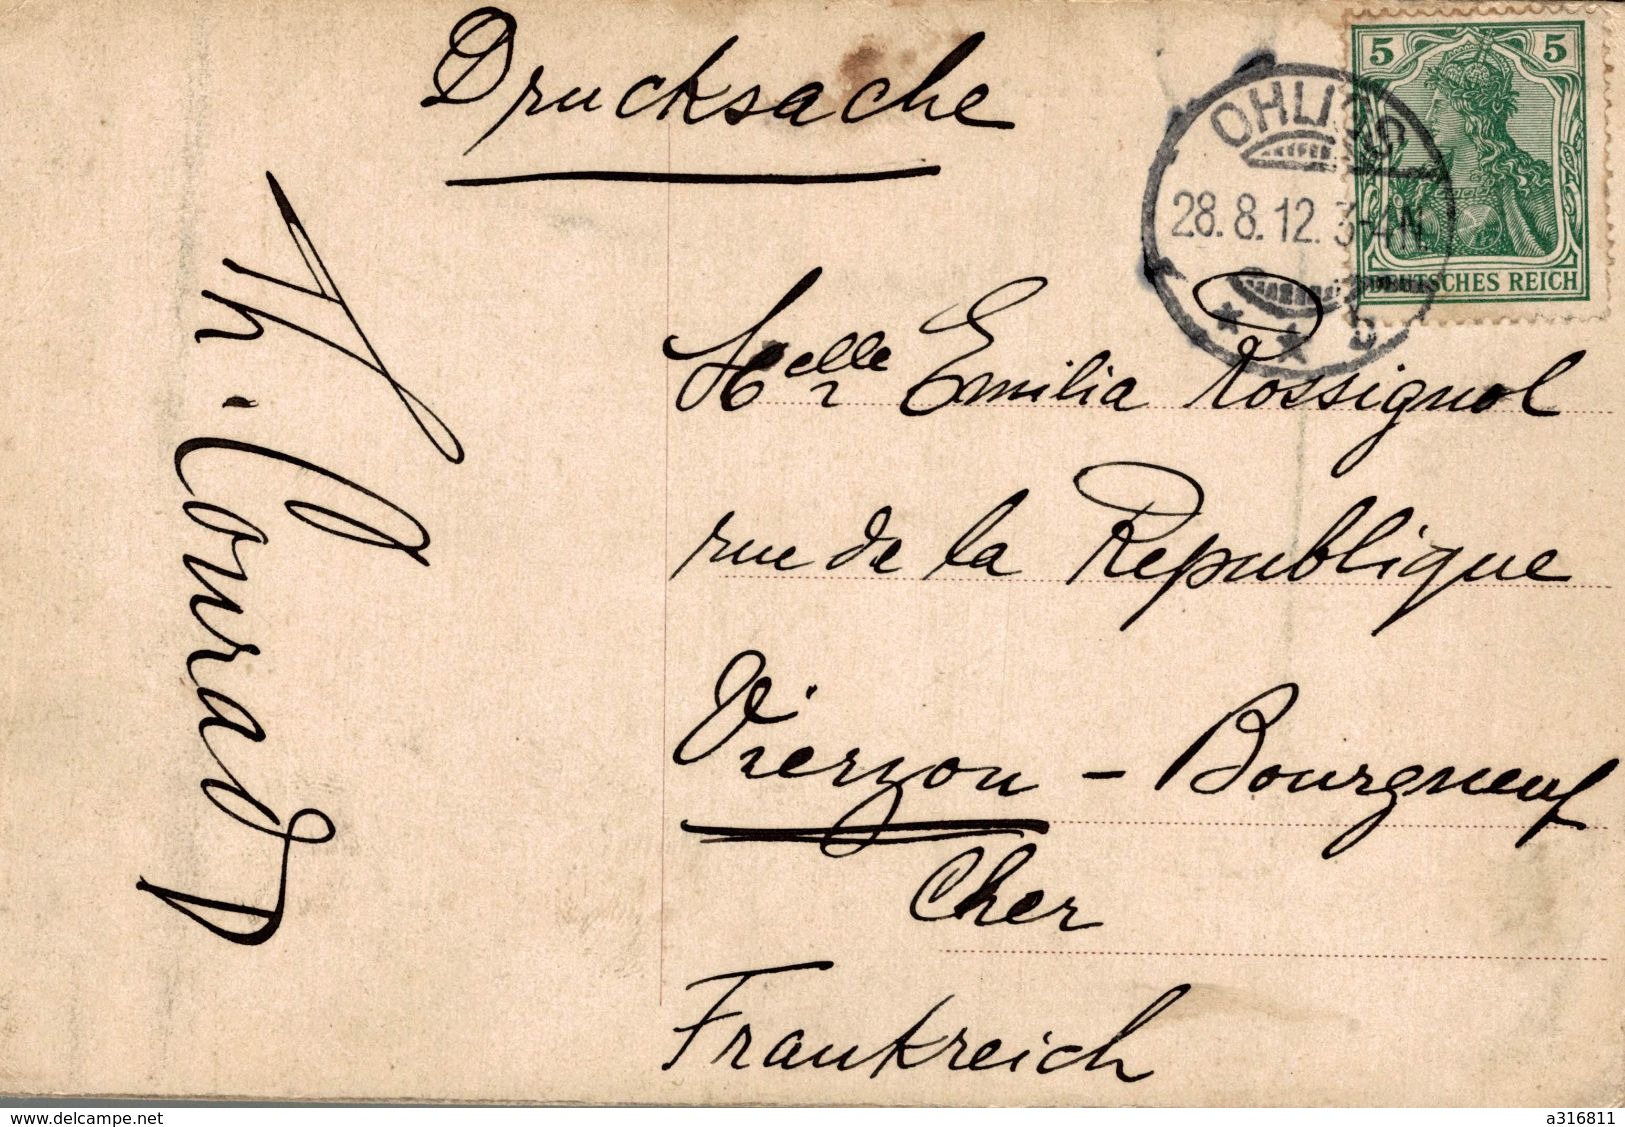 Drucksache
5 5
OHLIGS
28.8.12. 3-4N
DEUTSCHES REICH
* * D
Th. Conrad
Melle Emilia Rossignol
rue de la Republique
Vierzon - Bourgneuf
Cher
Frankreich
www.delcampe.net
a316811